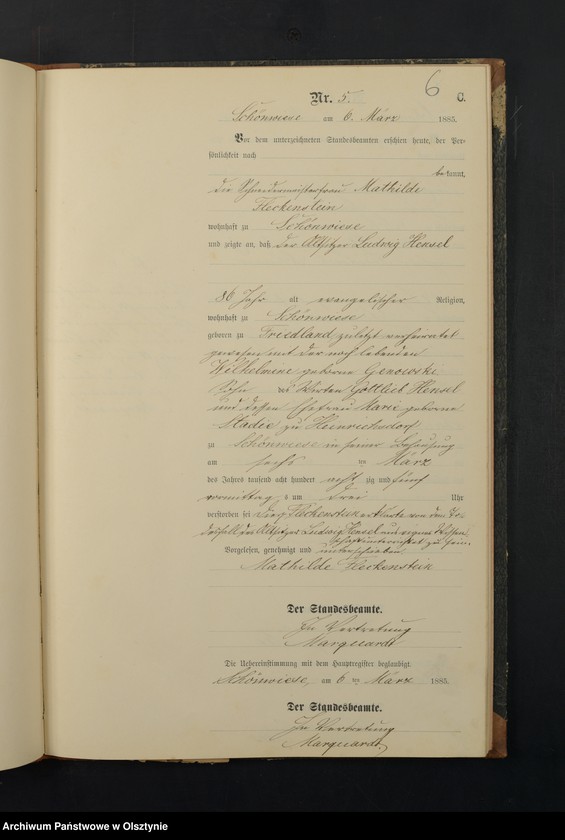 6
Nr. 5. C.
Schönwiese am 6. März 1885.
Vor dem unterzeichneten Standesbeamten erschien heute, der Per-
sönlichkeit nach
bekannt,
die Schneidermeisterfrau Mathilde
Fleckenstein
wohnhaft zu Schönwiese
und zeigte an, daß der Altsitzer Ludwig Hensel
86 Jahr alt evangelischer Religion,
wohnhaft zu Schönwiese
geboren zu Friedland zuletzt verheiratet
gewesen mit der noch lebenden
Wilhelmine geborne
Sohn des Gottlieb Hensel
und dessen Ehefrau Marie geborne
zu Heinrichsdorf
zu Schönwiese in seiner Behausung
am sechs ten März
des Jahres tausend acht hundert acht zig und fünf
vormittags um drei Uhr
verstorben sei. Die Fleckenstein erklärte von dem To-
desfall des Altsitzer Ludwig Hensel aus eigener Wissen-
schaft unterrichtet zu sein.
Vorgelesen, genehmigt und unterschrieben
Mathilde Fleckenstein
Der Standesbeamte.
In Vertretung
Marquardt
Die Uebereinstimmung mit dem Hauptregister beglaubigt.
Schönwiese, am 6 ten März 1885.
Der Standesbeamte.
In Vertretung
Marquardt
Archiwum Państwowe w Olsztynie